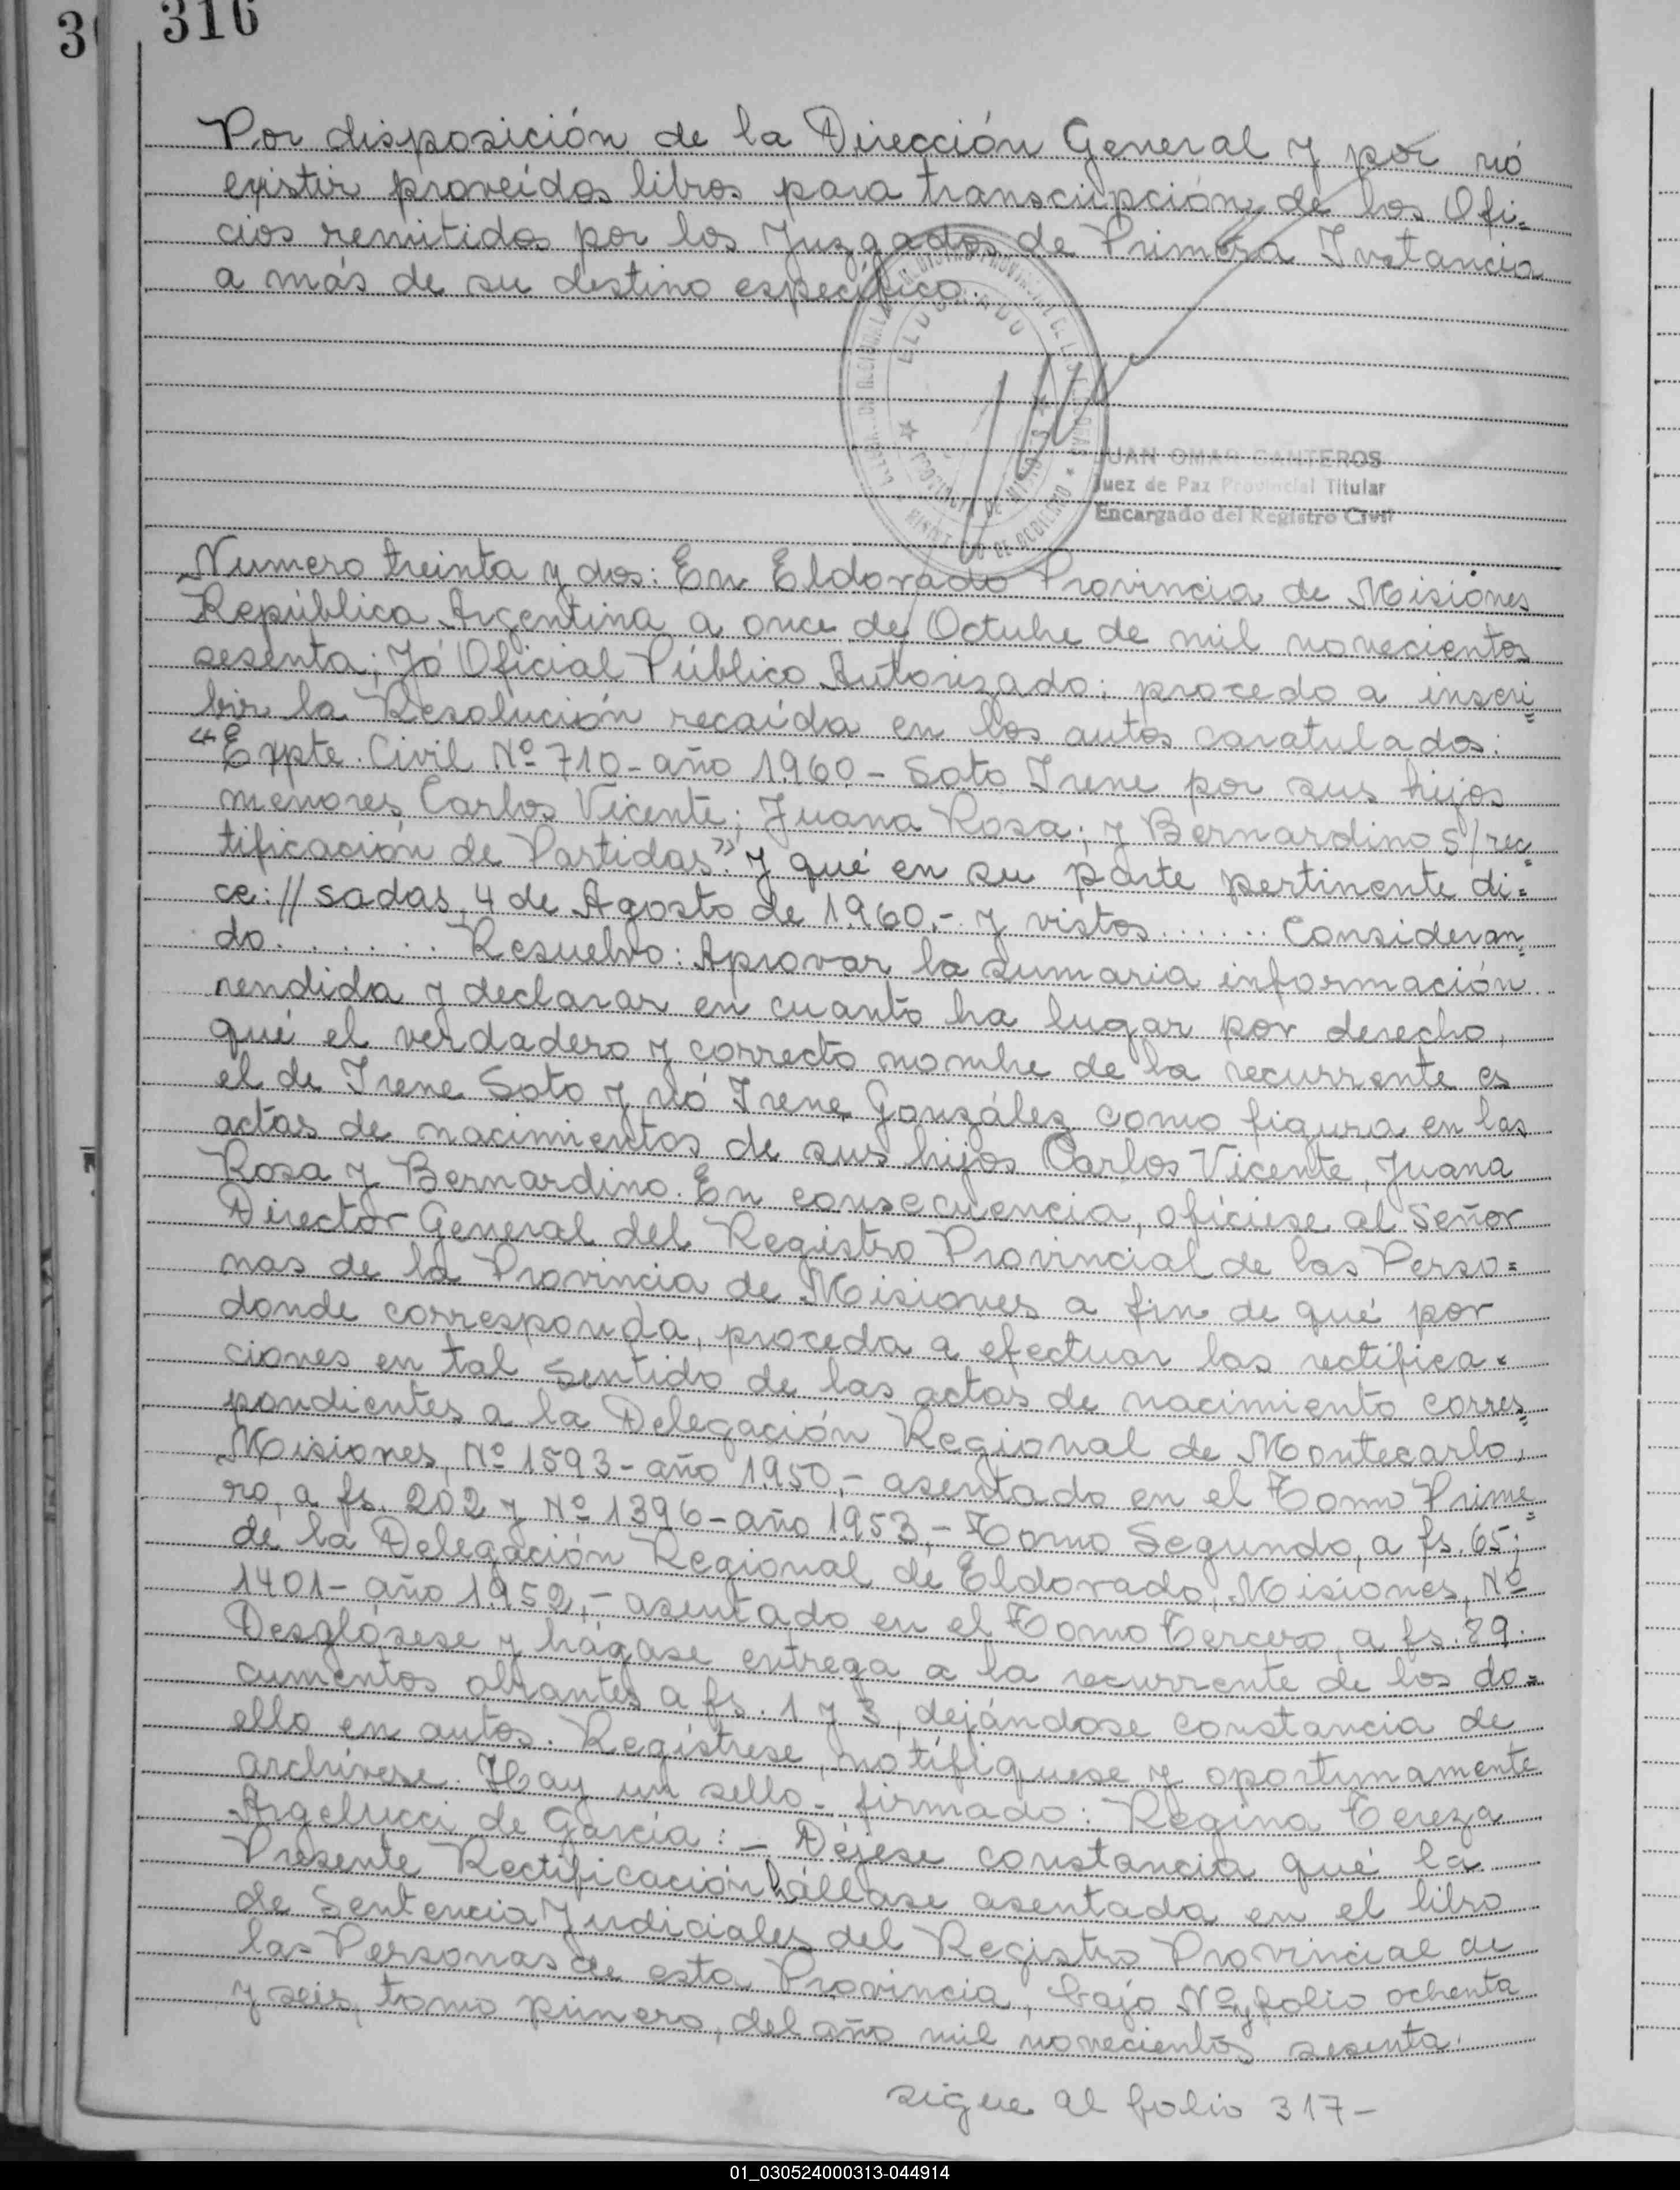 316
Por disposición de la Dirección General y por nó
existir proveídos libros para transcripción de los Ofi=
cios remitidos por los Juzgados de Primera Instancia
a más de su destino específico.
ELDORADO
PROVINCIA DE MISIONES
JUAN OMAR CANTEROS
Juez de Paz Provincial Titular
Encargado del Registro Civil
Numero treinta y dos: En Eldorado Provincia de Misiones
República Argentina a once de Octubre de mil novecientos
sesenta; Yó Oficial Público Autorizado; procedo a inscri=
bir la Resolución recaída en los autos caratulados:
"Expte. Civil Nº 710- año 1960 - Soto Irene por sus hijos
menores Carlos Vicente; Juana Rosa; y Bernardino S/rec=
tificación de Partidas" y qué en su parte pertinente di=
ce: // sadas, 4 de Agosto de 1960.- y vistos ...... Consideran=
do ....... Resuelvo: Aprovar la sumaria información
rendida y declarar en cuanto ha lugar por derecho,
qué el verdadero y correcto nombre de la recurrente es
el de Irene Soto y nó Irene González como figura en las
actas de nacimientos de sus hijos Carlos Vicente, Juana
Rosa y Bernardino. En consecuencia, ofíciese al Señor
Director General del Registro Provincial de las Perso=
nas de la Provincia de Misiones a fin de qué por
donde corresponda, proceda a efectuar las rectifica=
ciones en tal sentido de las actas de nacimiento corres=
pondientes a la Delegación Regional de Montecarlo,
Misiones, Nº 1593- año 1950,- asentado en el Tomo Prime=
ro, a fs. 202 y Nº 1396- año 1953,- Tomo Segundo, a fs. 65;
de la Delegación Regional de Eldorado, Misiones, Nº
1401- año 1952,- asentado en el Tomo Tercero, a fs. 89.
Desglósese y hágase entrega a la recurrente de los do=
cumentos obrantes a fs. 1 y 3, dejándose constancia de
ello en autos. Regístrese, notifíquese y oportunamente
archívese. Hay un sello - firmado: Regina Tereza
Argelucci de García: - Déjese constancia qué la
Presente Rectificación hállase asentada en el libro
de Sentencia Judiciales del Registro Provincial de
las Personas de esta Provincia, bajo Nº y folio ochenta
y seis, tomo primero, del año mil novecientos sesenta.
sigue al folio 317-
01_030524000313-044914